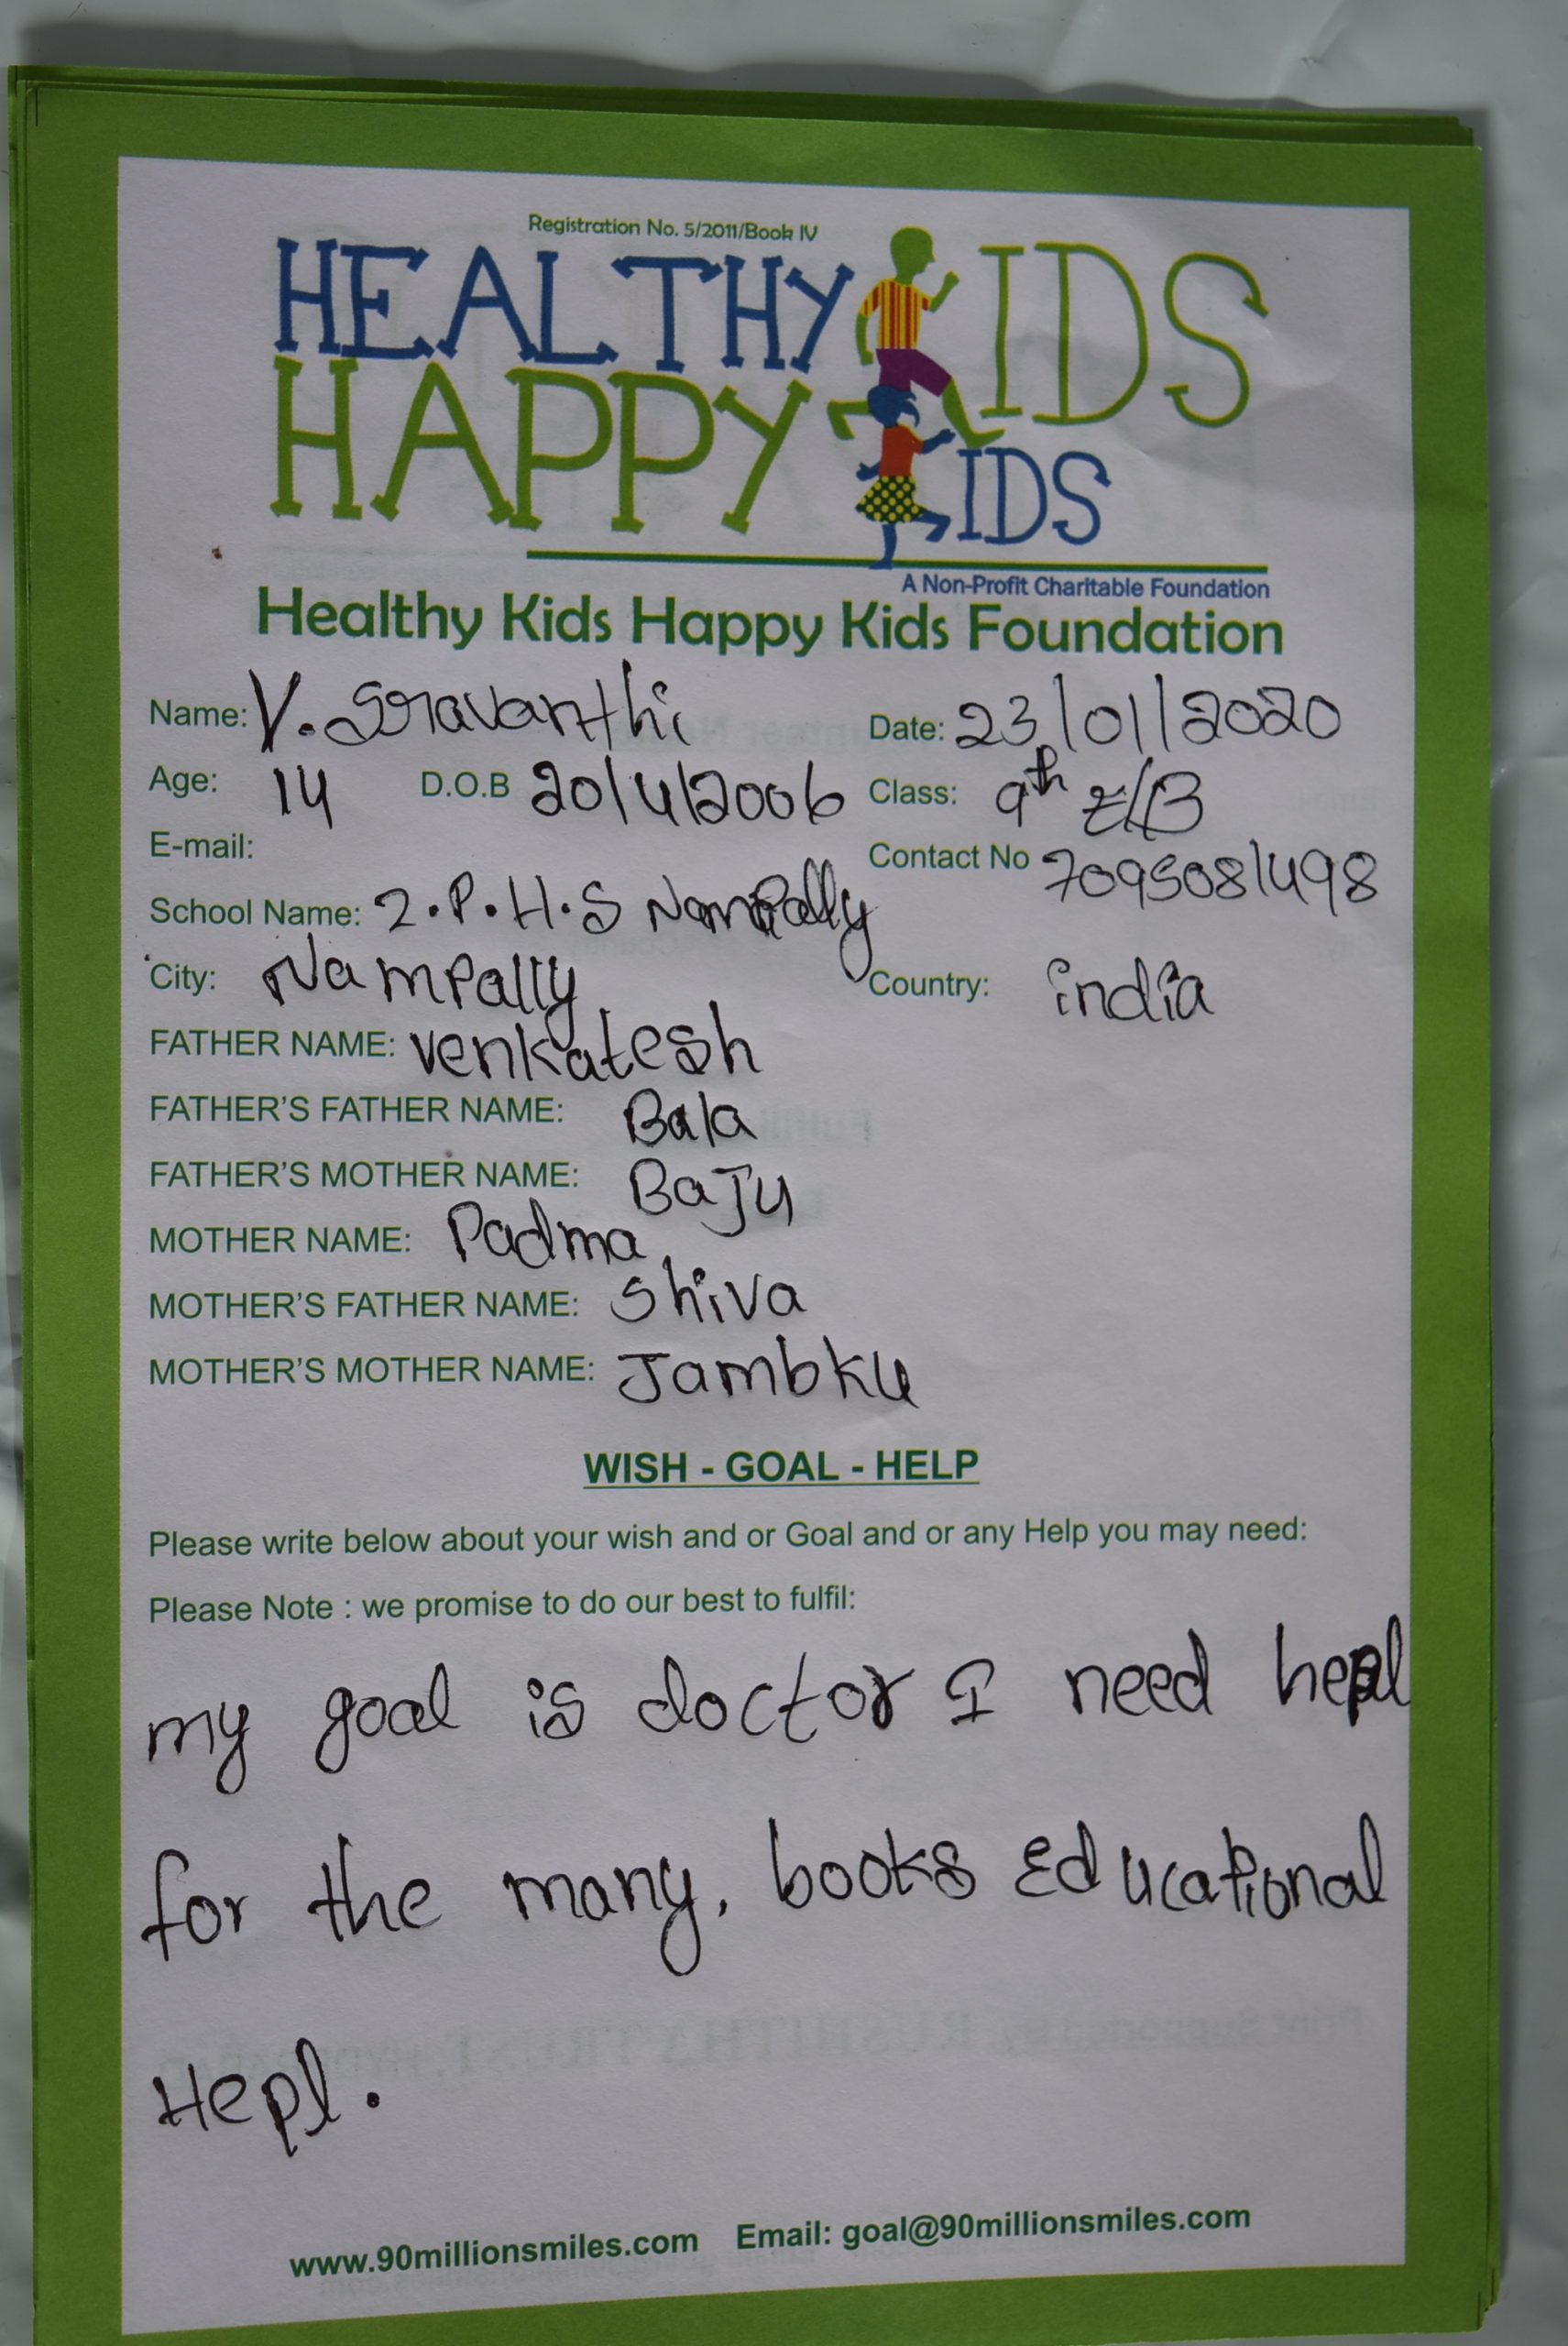 Registration No. 5/2011/Book IV
HEALTHY KIDS
HAPPY KIDS
A Non-Profit Charitable Foundation
Healthy Kids Happy Kids Foundation
Name: V. Sravanthi Date: 23/01/2020
Age: 14 D.O.B 20/4/2006 Class: 9th E/B
E-mail: Contact No 7095081498
School Name: Z.P.H.S Nampally
City: Nampally Country: india
FATHER NAME: venkatesh
FATHER'S FATHER NAME: Bala
FATHER'S MOTHER NAME: BaJu
MOTHER NAME: Padma
MOTHER'S FATHER NAME: Shiva
MOTHER'S MOTHER NAME: Jambku
WISH - GOAL - HELP
Please write below about your wish and or Goal and or any Help you may need:
Please Note : we promise to do our best to fulfil:
my goal is doctor I need hepl
for the many, books Educational
Hepl.
www.90millionsmiles.com Email: goal@90millionsmiles.com